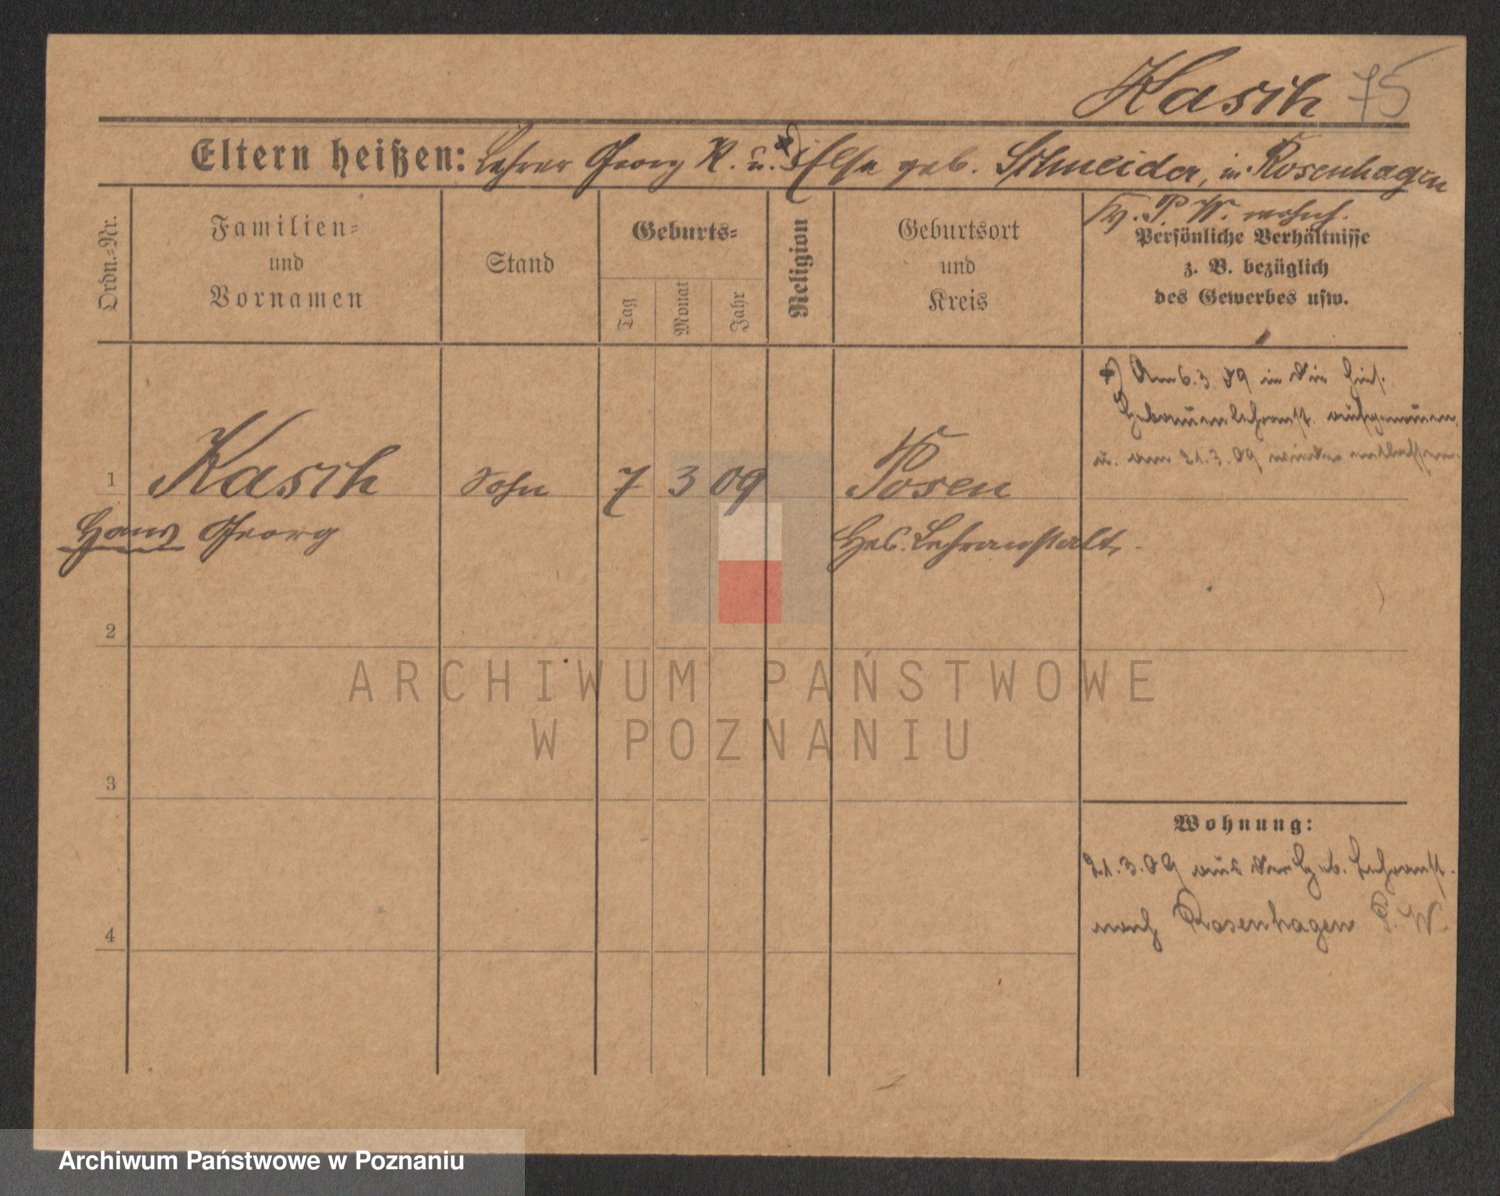 Kasch 75
Eltern heißen: Lehrer Georg K. u. *) Else geb. Schneider, in Rosenhagen
Kr. P. W. wohnh.
Ordn.-Nr.
Familien-
und
Vornamen
Stand
Geburts-
Tag
Monat
Jahr
Religion
Geburtsort
und
Kreis
Persönliche Verhältnisse
z. B. bezüglich
des Gewerbes usw.
*) Am 6.3.09 in die hies.
Hebammenlehranst. aufgenommen
u. am 21.3.09 wieder entlassen.
1 Kasch Sohn 7 3 09 Posen
Hans Georg Heb. Lehranstalt.
2
3
4
Wohnung:
21.3.09 aus der Heb. Lehranst.
nach Rosenhagen P. W.
ARCHIWUM PAŃSTWOWE
W POZNANIU
Archiwum Państwowe w Poznaniu